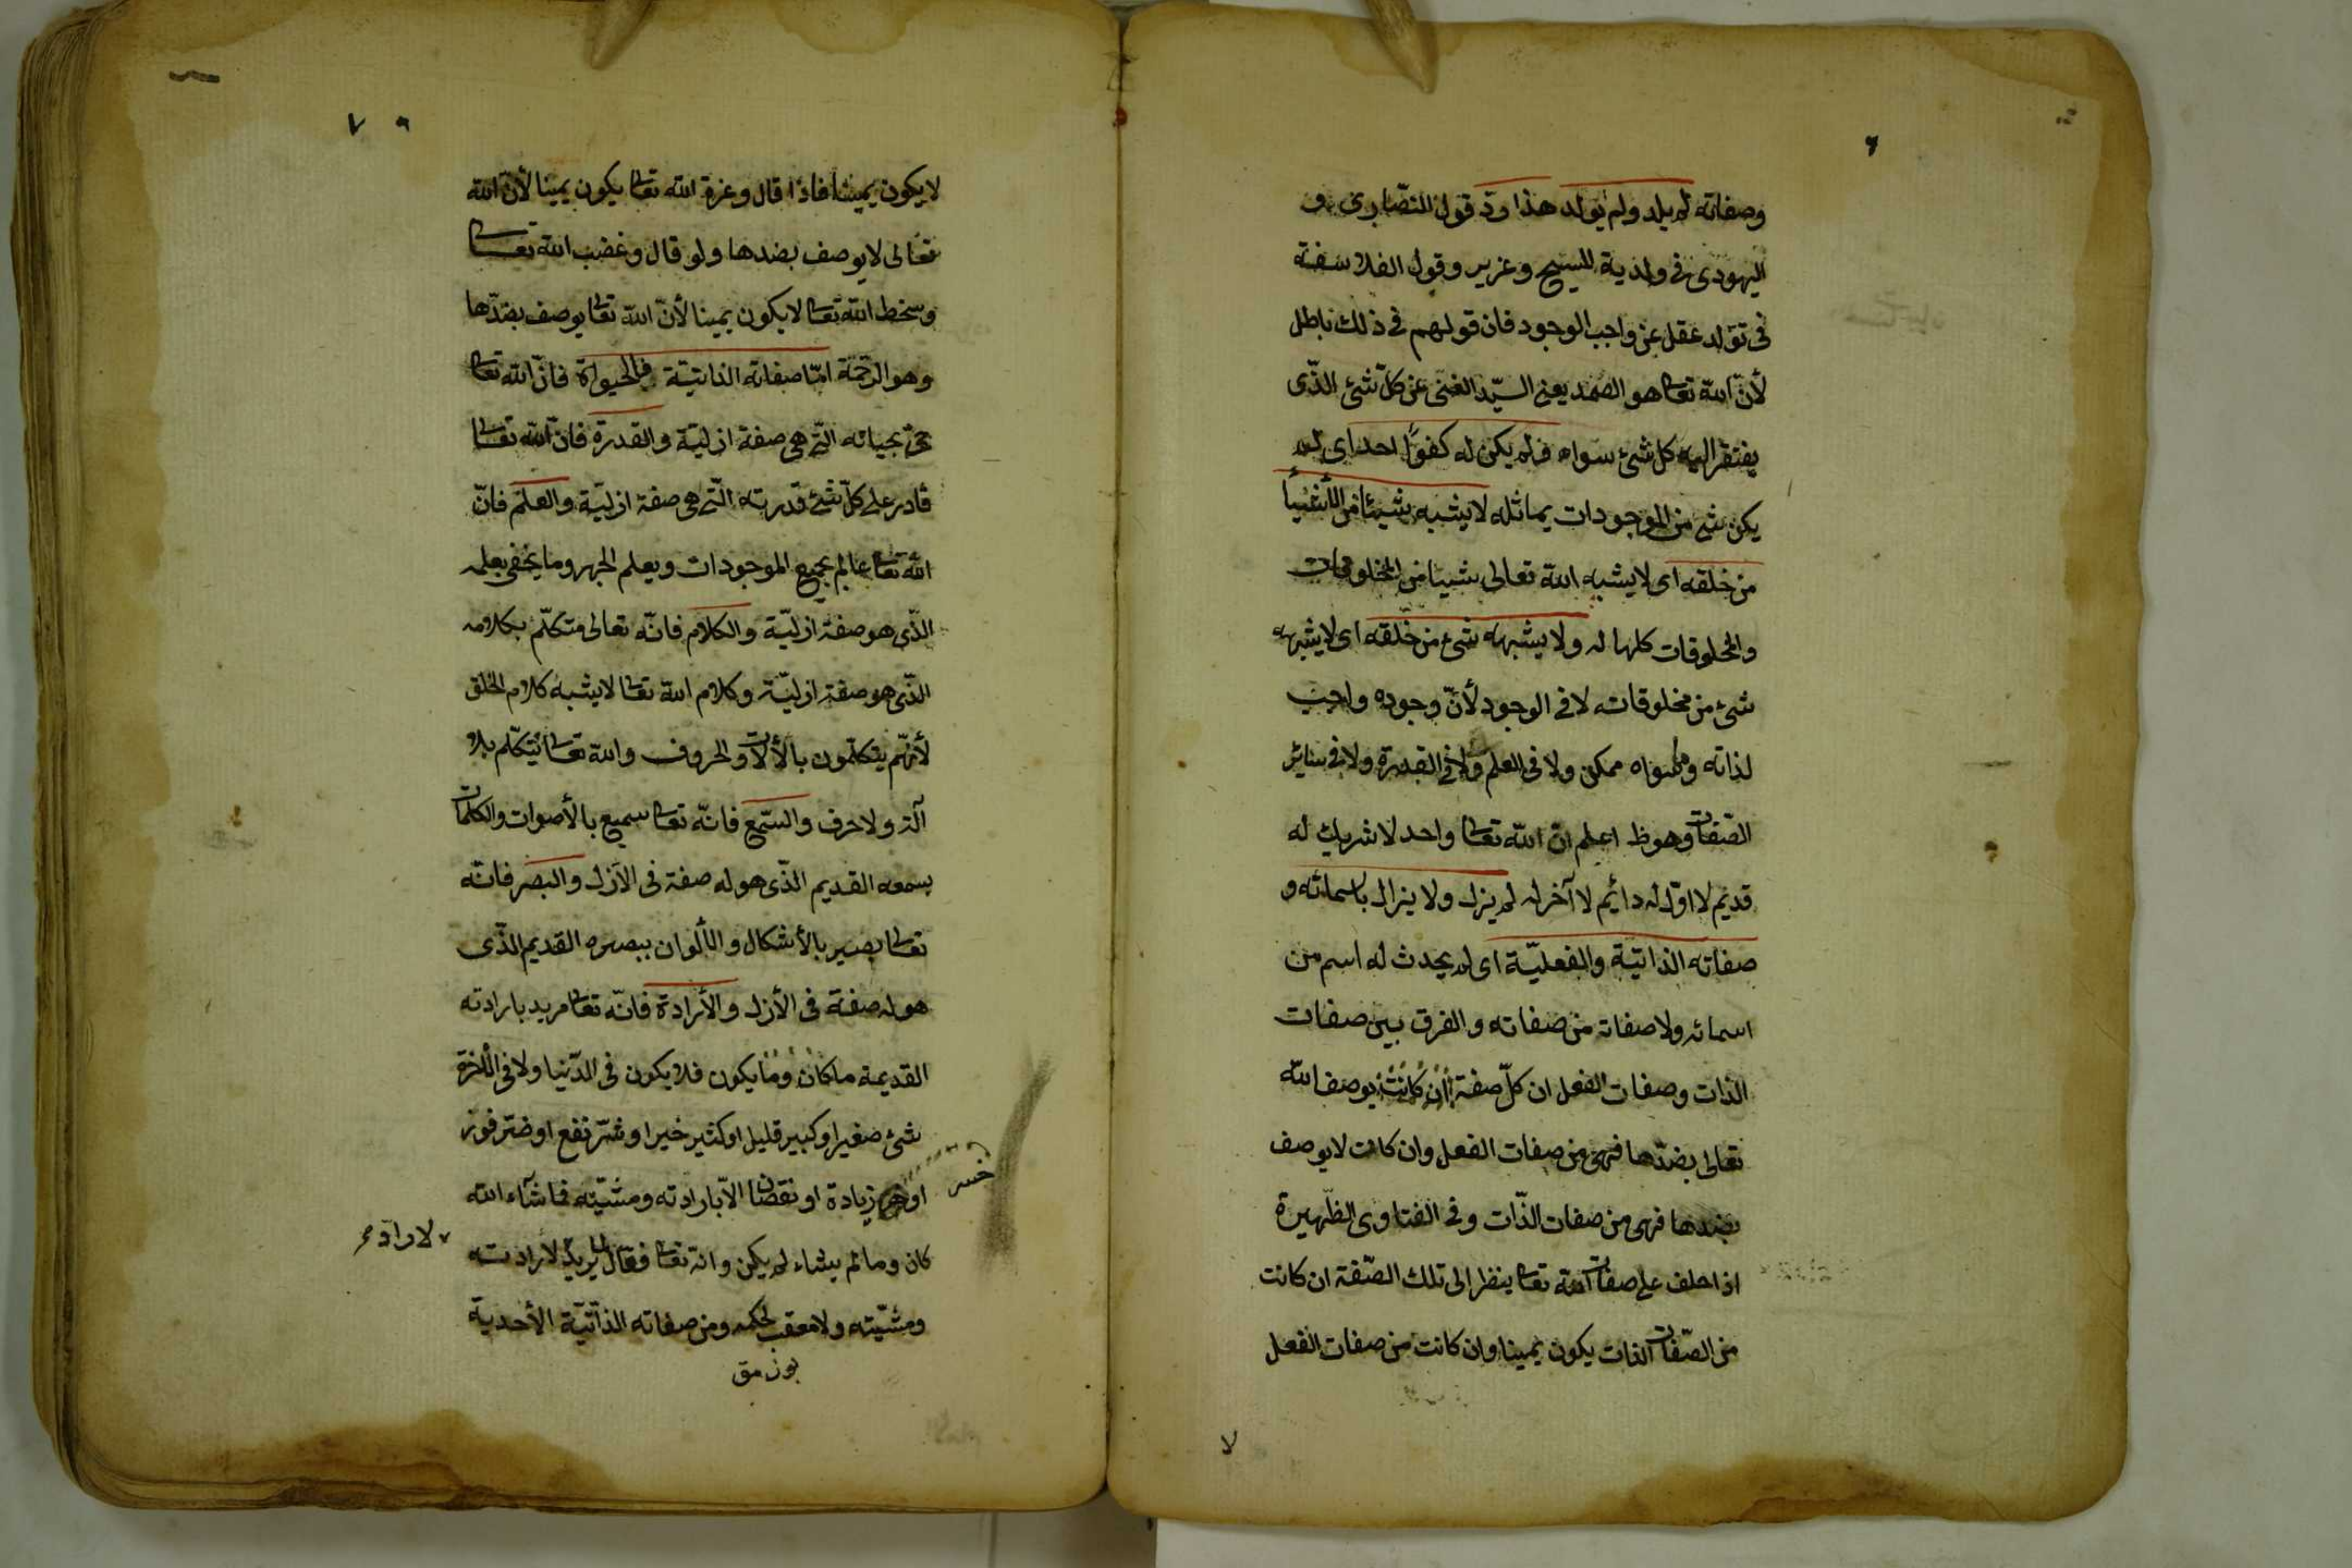 ٦
وصفاته لم يلد ولم يولد هذا ردّ قول النصّارى و
اليهودى فى ولدية المسيح وعزير وقول الفلاسفة
فى تولد عقل عن واجب الوجود فان قولهم فى ذلك باطل
لأنّ الله تعا هو الصمد يعنى السيّد الغنى عن كلّ شئ الذّى
يفتقر اليه كل شئ سواه فلم يكن له كفوًا احد اى لم
يكن شئ من الموجودات يماثله لا يشبه شيئا من الأشيأ
من خلقه اى لا يشبه الله تعالى شيئا من المخلوقات
والمخلوقات كلها له ولا يشبهه شئ من خلقه اى لا يشبهه
شئ من مخلوقاته لا فى الوجود لأنّ وجوده واجب
لذاته وما سواه ممكن ولا فى العلم ولا فى القدرة ولا فى سائر
الصّفات وهو ظ اعلم انّ الله تعا واحد لا شريك له
قديم لا اوّل له دائم لا آخر له لم يزل ولا يزال باسمائه و
صفاته الذاتيّة والفعليّة اى لم يحدث له اسم من
اسمائه ولا صفاته من صفاته والفرق بين صفات
الذات وصفات الفعل ان كلّ صفة ان كانت يوصف الله
تعالى بضدّها فهى من صفات الفعل وان كانت لا يوصف
بضدها فهى من صفات الذّات وفى الفتاوى الظّهيرة
اذا حلف على صفات الله تعا ينظر الى تلك الصّفة ان كانت
من الصّفات الذات يكون يمينا وان كانت من صفات الفعل
لا
٧
لا يكون يمينا فاذا قال وعزة الله تعا يكون يمينا لأنّ الله
تعالى لا يوصف بضدها ولو قال وغضب الله تعا
وسخط الله تعا لا يكون يمينا لأنّ الله تعا يوصف بضدّها
وهو الرحمة امّا صفاته الذاتيّة فالحيواة فانّ الله تعا
حىّ بحياته التّى هى صفة ازليّة والقدرة فانّ الله تعا
قادر على كلّ شئ قدرته التّى هى صفة ازليّة والعلم فانّ
الله تعا عالم بجميع الموجودات ويعلم الجهر وما يخفى بعلمه
الذّى هو صفة ازليّة والكلام فانّه تعالى متكلّم بكلامه
الذّى هو صفة ازليّة وكلام الله تعا لا يشبه كلام الخلق
لأنهّم يتكلّمون بالألات والحروف والله تعا يتكلّم بلا
آلة ولا حرف والسّمع فانّه تعا سميع بالأصوات والكلمات
بسمعه القديم الذّى هو له صفة فى الأزل والبصر فانّه
تعا بصير بالأشكال والألوان ببصره القديم الذّى
هو له صفة فى الأزل والأرادة فانّه تعا مريد بارادته
القديمة ما كان وما يكون فلا يكون فى الدّنيا ولا فى الأخرة
شئ صغير او كبير قليل او كثير خير او شرّ نفع او ضرّ فوز
او زيادة او نقصان الاّ بارادته ومشيّته فما شآء الله
خسر
كان وما لم يشاء لم يكن وانّه تعا فعّال لما يريد لا رادته
لا رادّ
ومشيّته ولا معقب لحكمه ومن صفاته الذاتيّة الأحدية